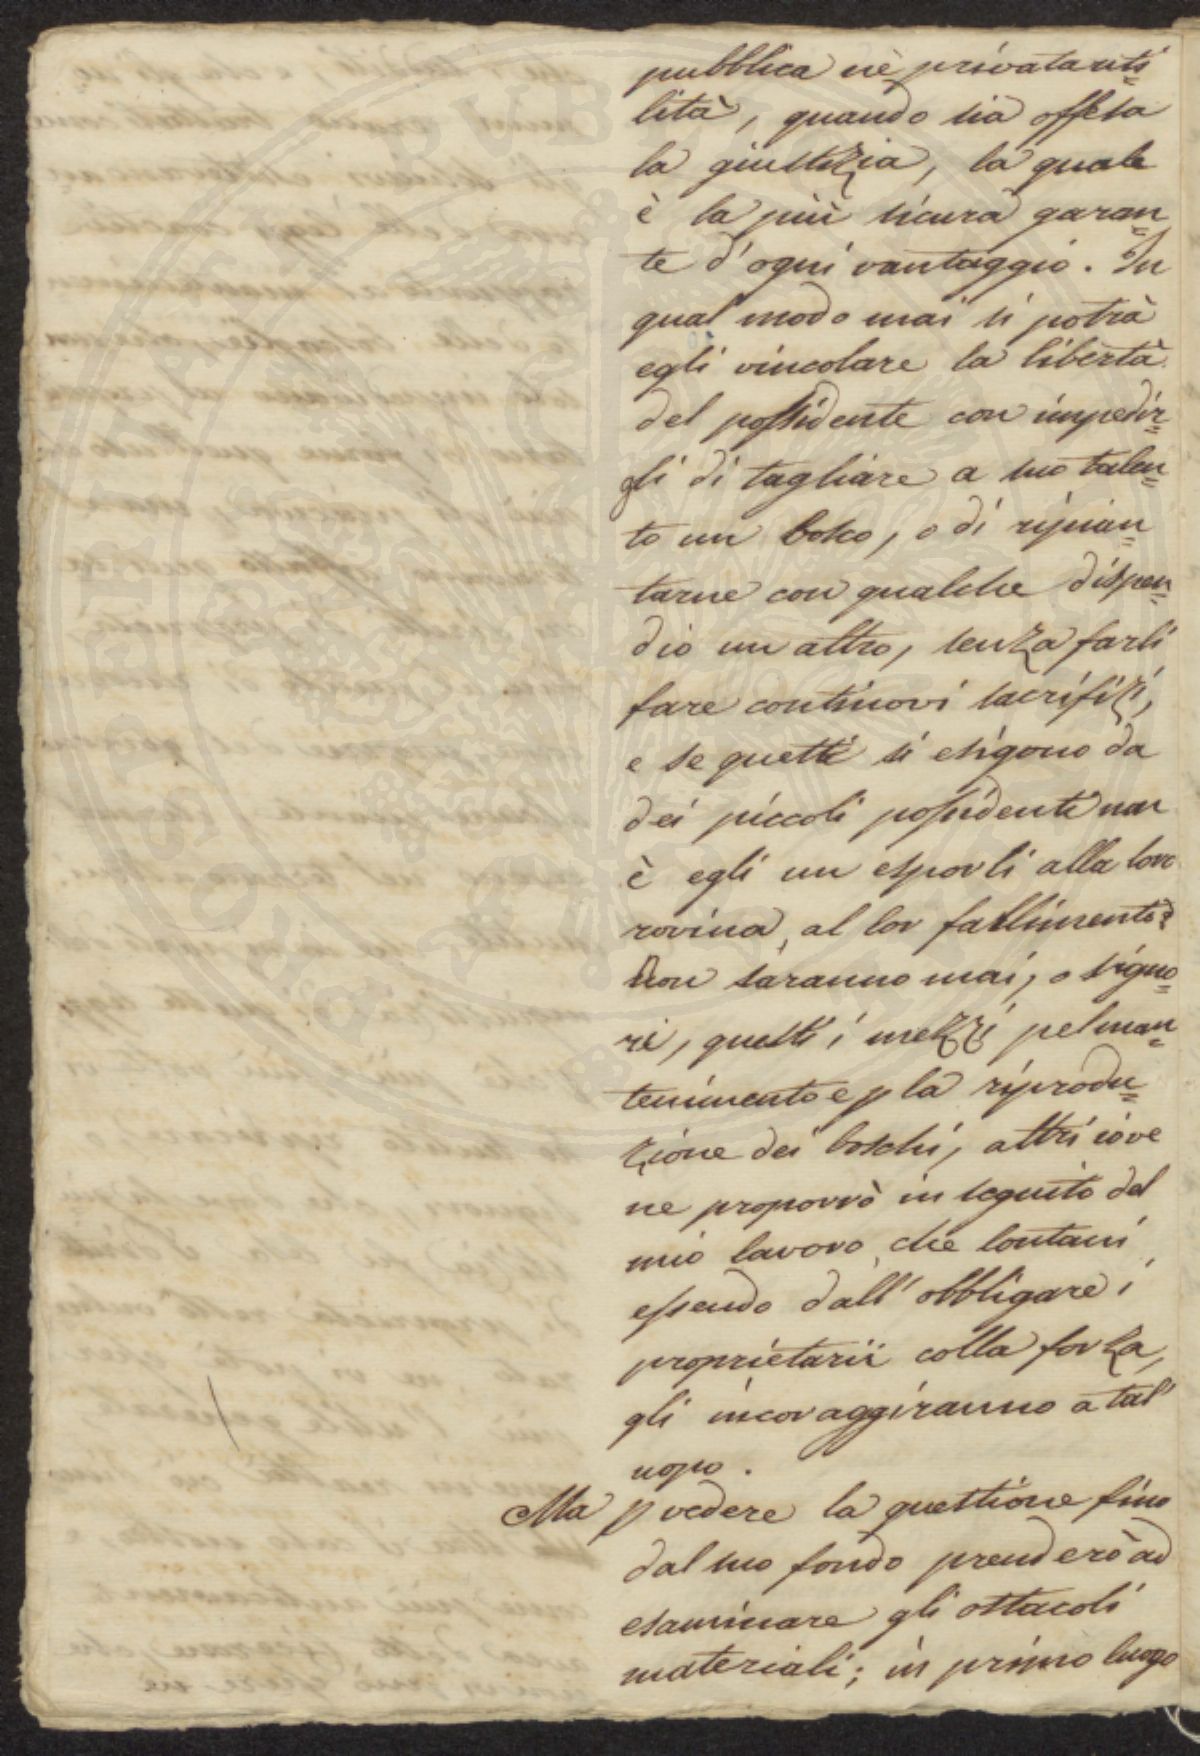 pubblica nè privata uti=
lità, quando sia offesa
la giustizia, la quale
è la più sicura garan=
te d'ogni vantaggio. In
qual modo mai si potrà
egli vincolare la libertà
del possidente con impedir=
gli di tagliare a suo talen=
to un bosco, o di ripian=
tarne con qualche dispen=
dio un altro, senza farli
fare continovi sacrifizi,
e se questi si esigono da
dei piccoli possidenti non
è egli un esporli alla loro
rovina, al lor fallimento?
Non saranno mai, o signo=
ri, questi i mezzi pel man=
tenimento e p la riprodu=
zione dei boschi, altri iove
ne proporrò in seguito del
mio lavoro, che lontani
essendo dall' obbligare i
proprietarii colla forza,
gli incoraggiranno a tal'
uopo.
Ma p vedere la questione fino
dal suo fondo prenderò ad
esaminare gli ostacoli
materiali; in primo luogo